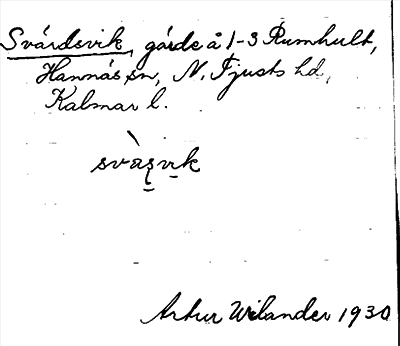 Svärdsvik, gärde å 1-3 Rumhult,
Hannäs sn, N. Tjusts hd,
Kalmar l.
svàʂvi̠k
Artur Wilander 1930